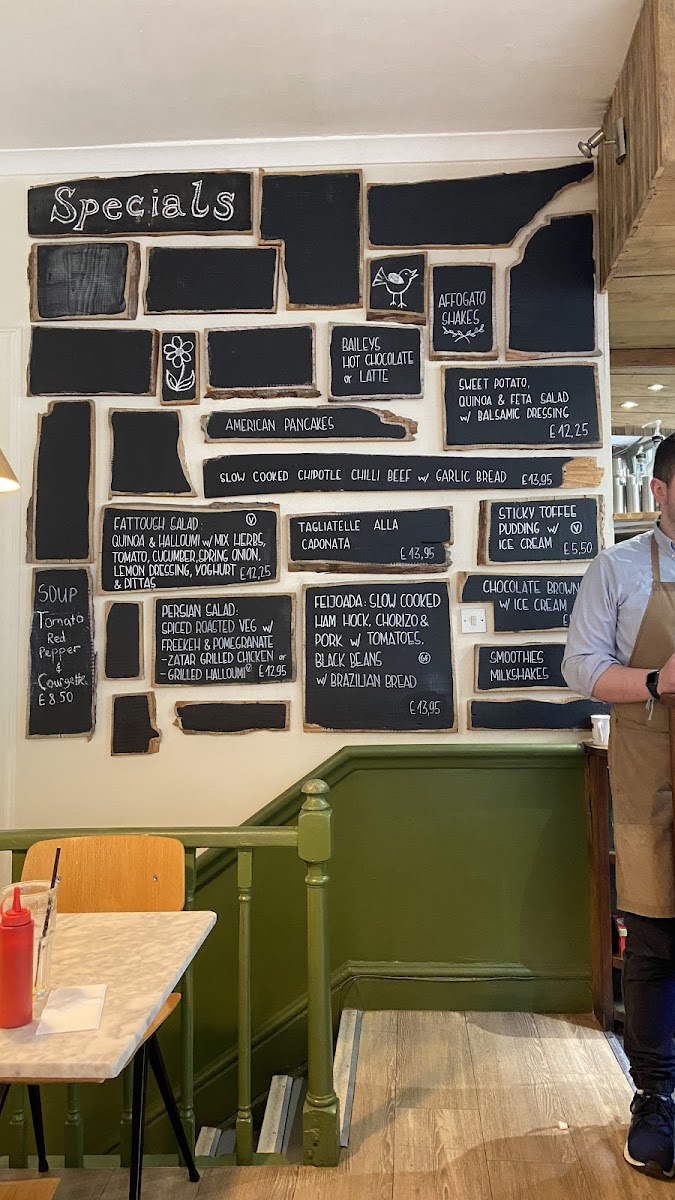 Specials
AFFOGATO
SHAKES
BAILEYS
HOT CHOCOLATE
or LATTE
SWEET POTATO,
QUINOA & FETA SALAD
w/ BALSAMIC DRESSING
£12,25
AMERICAN PANCAKES
SLOW COOKED CHIPOTLE CHILLI BEEF w/ GARLIC BREAD £13,95
FATTOUGH SALAD: V
QUINOA & HALLOUMI w/ MIX HERBS,
TOMATO, CUCUMBER, SPRING ONION,
LEMON DRESSING, YOGHURT
& PITTAS £12,25
TAGLIATELLE ALLA
CAPONATA
£13,95
STICKY TOFFEE
PUDDING w/ V
ICE CREAM £5,50
SOUP
Tomato
Red
Pepper
&
Courgette
£8.50
PERSIAN SALAD:
SPICED ROASTED VEG w/
FREEKEH & POMEGRANATE
-ZATAR GRILLED CHICKEN or
-GRILLED HALLOUMI V £12,95
FEIJOADA: SLOW COOKED
HAM HOCK, CHORIZO &
PORK w/ TOMATOES,
BLACK BEANS GF
w/ BRAZILIAN BREAD
£13,95
CHOCOLATE BROWN
w/ ICE CREAM
£
SMOOTHIES
MILKSHAKES